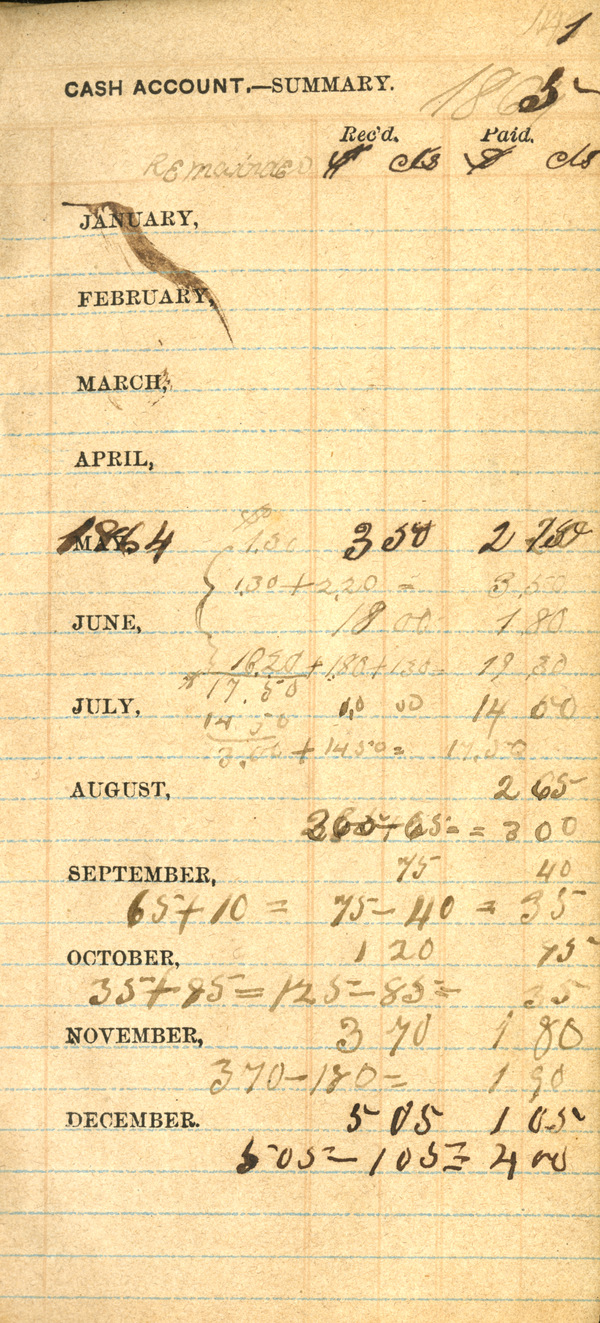 1
CASH ACCOUNT.—SUMMARY.
186
Rec'd. Paid.
Remainder $ cts $ cts
JANUARY,
FEBRUARY,
MARCH,
APRIL,
1864 MAY, 1.30 3 50 2
1.30 + 2.20 = 3 50
JUNE, 18 00 1 80
18.20 + 1.80 + 1.30 = 19 30
17.50
JULY, 14 50
14 50
3.00 + 14 50 = 17.50
AUGUST, 2 65
= 3 00
SEPTEMBER, 75 40
65 + 10 = 75 - 40 = 35
OCTOBER, 1 20
35 + 85 = 125 - 85 = 35
NOVEMBER, 3 70 1 80
370 - 180 = 1 90
DECEMBER. 5 05 1 05
5 05 - 1 05 = 4 00